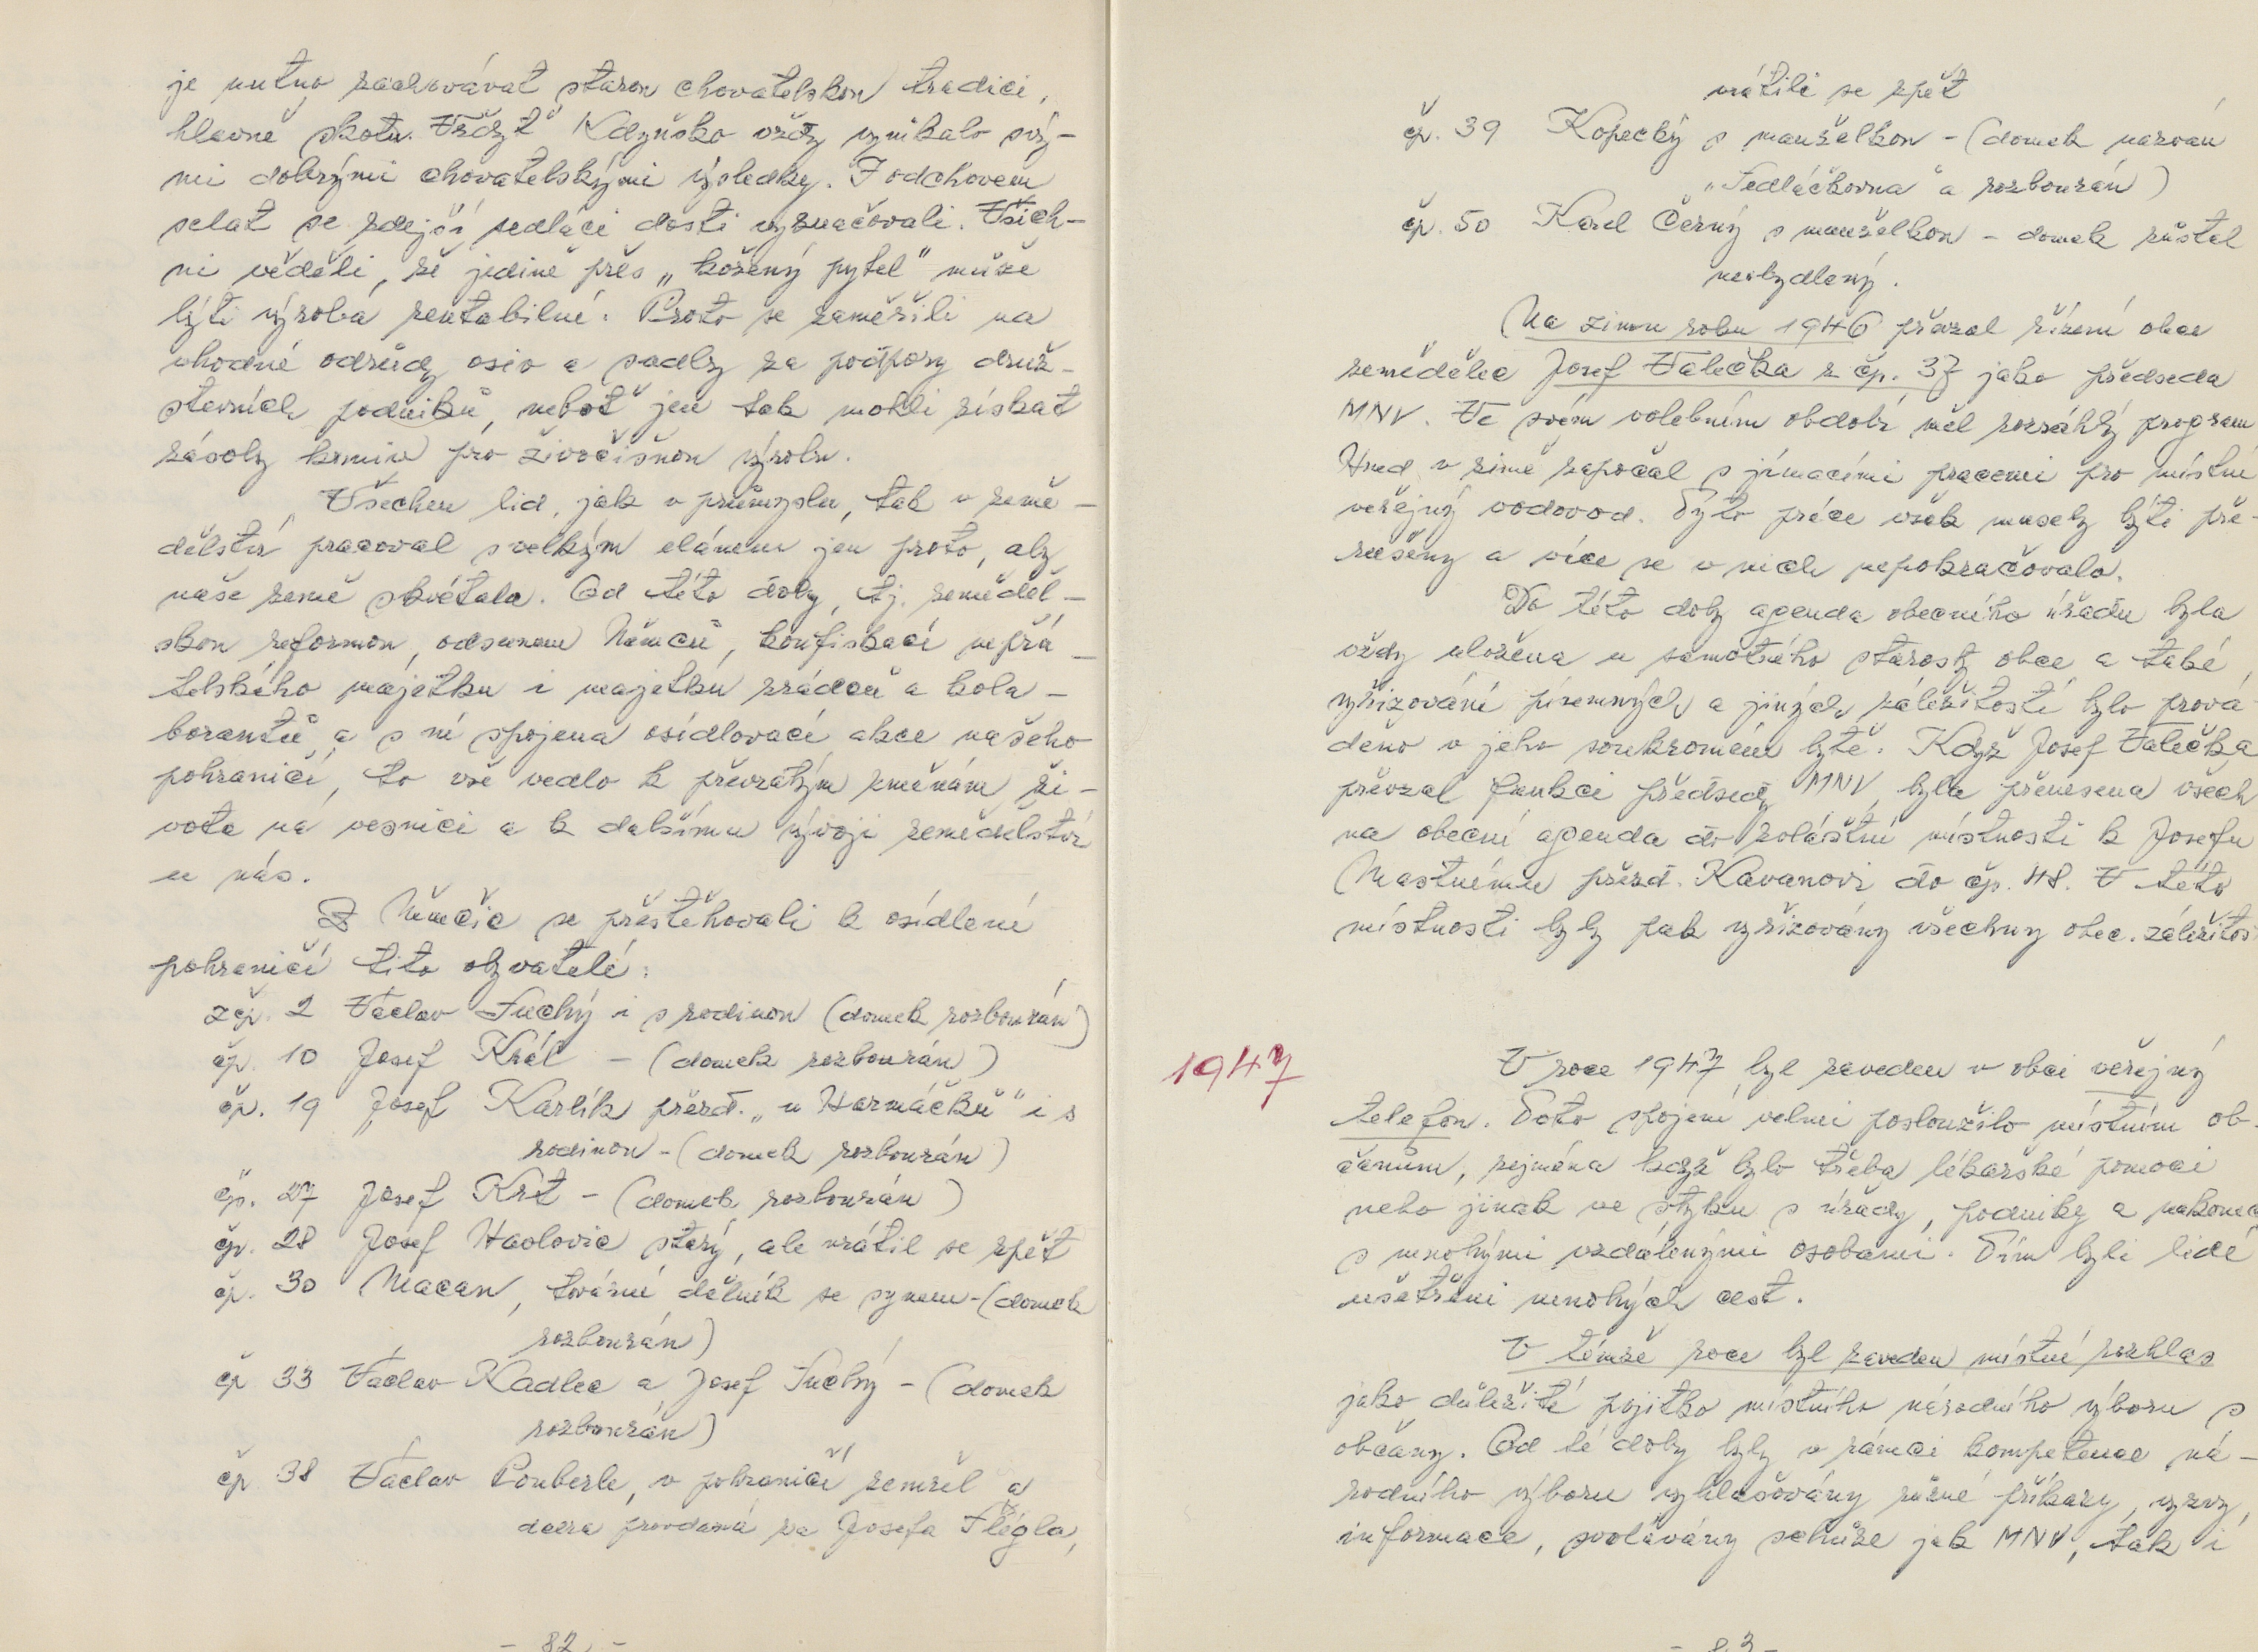 je nutno zachovávat starou chovatelskou tradici,
hlavně skotu. Vždyť Kdyňsko vždy vynikalo svý-
mi dobrými chovatelskými výsledky. I odchovem
selat se zdejší sedláci dosti vyznačovali. Všich-
ni věděli, že jedině přes „kožený pytel" může
býti výroba rentabilní. Proto se zaměřili na
vhodné odrůdy osiv a sadby za podpory druž-
stevních podniků, neboť jen tak mohli získat
zásoby krmiv pro živočišnou výrobu.
Všechen lid, jak v průmyslu, tak v země-
dělství pracoval s velkým elánem jen proto, aby
naše země zkvétala. Od této doby, tj. zeměděl-
skou reformou, odsunem Němců, konfiskací nepřá-
telského majetku i majetku zrádců a kola-
borantů a s ní spojena osídlovací akce našeho
pohraničí, to vše vedlo k převratným změnám ži-
vota na vesnici a k dalšímu vývoji zemědělství
u nás.
Z Němčic se přestěhovali k osídlení
pohraničí tito obyvatelé:
z čp. 2 Václav Suchý i s rodinou (domek rozbourán)
čp. 10 Josef Král - (domek rozbourán)
čp. 19 Josef Karlík přezd. „u Harmáčků" i s
rodinou - (domek rozbourán)
čp. 27 Josef Krt - (domek rozbourán)
čp. 28 Josef Haolovic starý, ale vrátil se zpět
čp. 30 Macan, tovární dělník se synem - (domek
rozbourán)
čp 33 Václav Kadlec a Josef Suchý - (domek
rozbourán)
čp 38 Václav Pouberle, v pohraničí zemřel a
dcera provdaná za Josefa Flégla,
- 82 -
vrátili se zpět
čp. 39 Kopecký s manželkou - (domek nazván
„Sedláčkovna" a rozbourán)
čp. 50 Karel Černý s manželkou - domek zůstal
neobydlený.
Na zimu roku 1946 převzal řízení obce
zemědělec Josef Valečka z čp. 37 jako předseda
MNV. Ve svém volebním období měl rozsáhlý program
Hned v zimě započal s jímacími pracemi pro místní
veřejný vodovod. Tyto práce však musely býti pře-
rušeny a více se v nich nepokračovalo.
Do této doby agenda obecního úřadu byla
vždy uložena u samotného starosty obce a také
vyřizování písemných a jiných záležitostí bylo prová
děno v jeho soukromém bytě. Když Josef Valečka
převzal funkci předsedy MNV, byla přenesena všech
na obecní agenda do zvláštní místnosti k Josefu
Mastnému přezd. Kavanovi do čp. 48. V této
místnosti byly pak vyřizovány všechny obec. záležitos
1947
V roce 1947 byl zaveden v obci veřejný
telefon. Toto spojení velmi posloužilo místním ob-
čanům, zejména když bylo třeba lékařské pomoci
nebo jinak ve styku s úřady, podniky a nakonec
s mnohými vzdálenými osobami. Tím byli lidé
ušetřeni mnohých cest.
V témže roce byl zaveden místní rozhlas
jako důležité pojítko místního národního výboru s
občany. Od té doby byly v rámci kompetence ná-
rodního výboru vyhlašovány různé příkazy, výzvy,
informace, svolávány schůze jak MNV, tak i
- 83 -